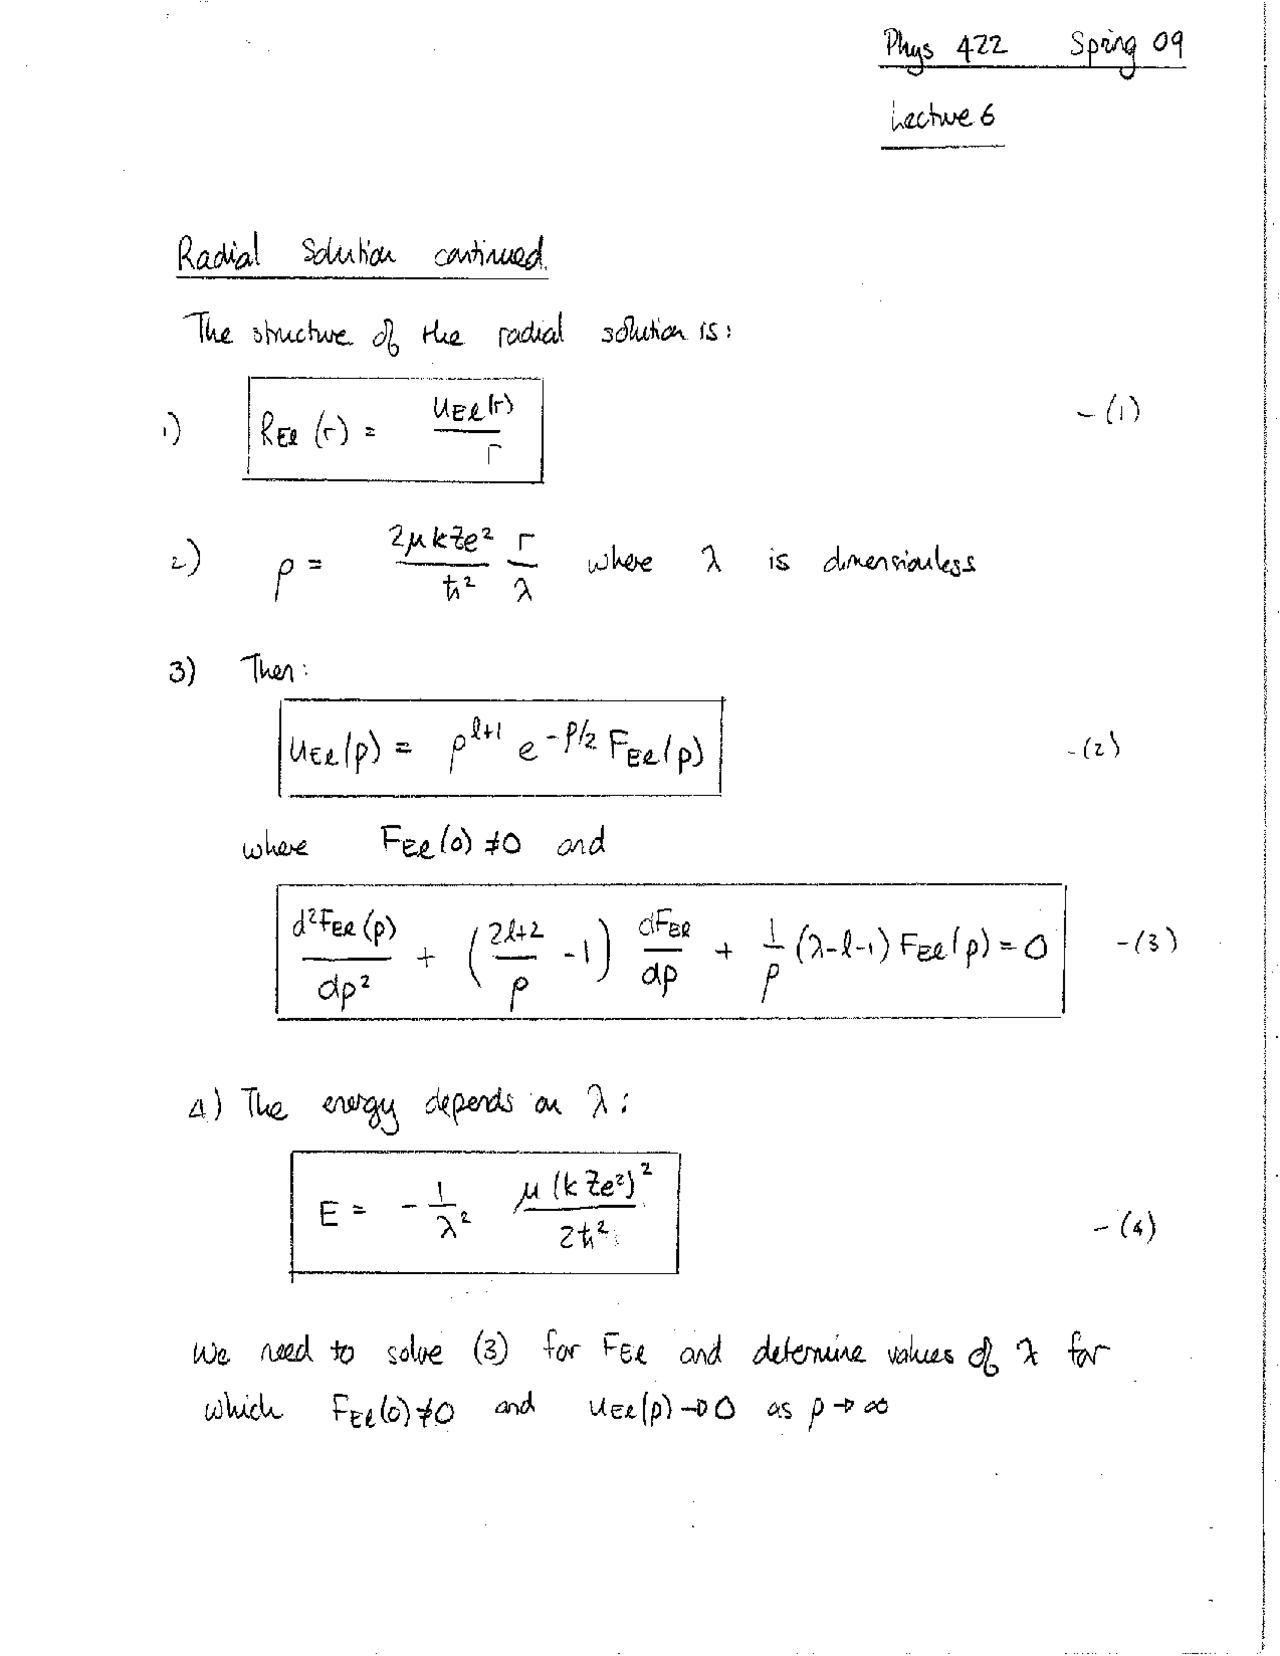 Phys 422 Spring 09
Lecture 6
Radial Solution continued.
The structure of the radial solution is:
1) R_{El}(r) = \frac{u_{El}(r)}{r} -(1)
2) ρ = \frac{2μkZe^2}{ħ^2} \frac{r}{λ} where λ is dimensionless
3) Then:
u_{El}(ρ) = ρ^{l+1} e^{-ρ/2} F_{El}(ρ) -(2)
where F_{El}(0) ≠ 0 and
\frac{d^2F_{El}(ρ)}{dρ^2} + (\frac{2l+2}{ρ} - 1) \frac{dF_{El}}{dρ} + \frac{1}{ρ} (λ-l-1) F_{El}(ρ) = 0 -(3)
4) The energy depends on λ:
E = -\frac{1}{λ^2} \frac{μ(kZe^2)^2}{2ħ^2} -(4)
We need to solve (3) for F_{El} and determine values of λ for
which F_{El}(0) ≠ 0 and u_{El}(ρ) → 0 as ρ → ∞